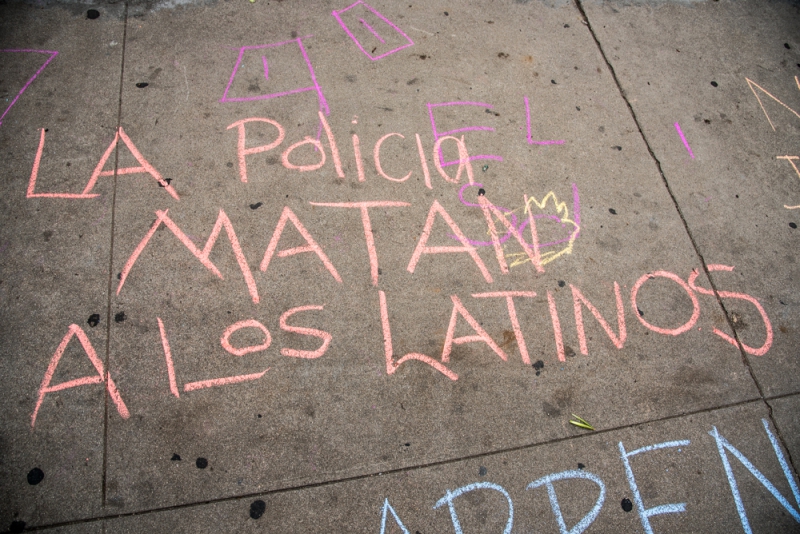 EL
LA Policia
MATAN
A Los LATINOS